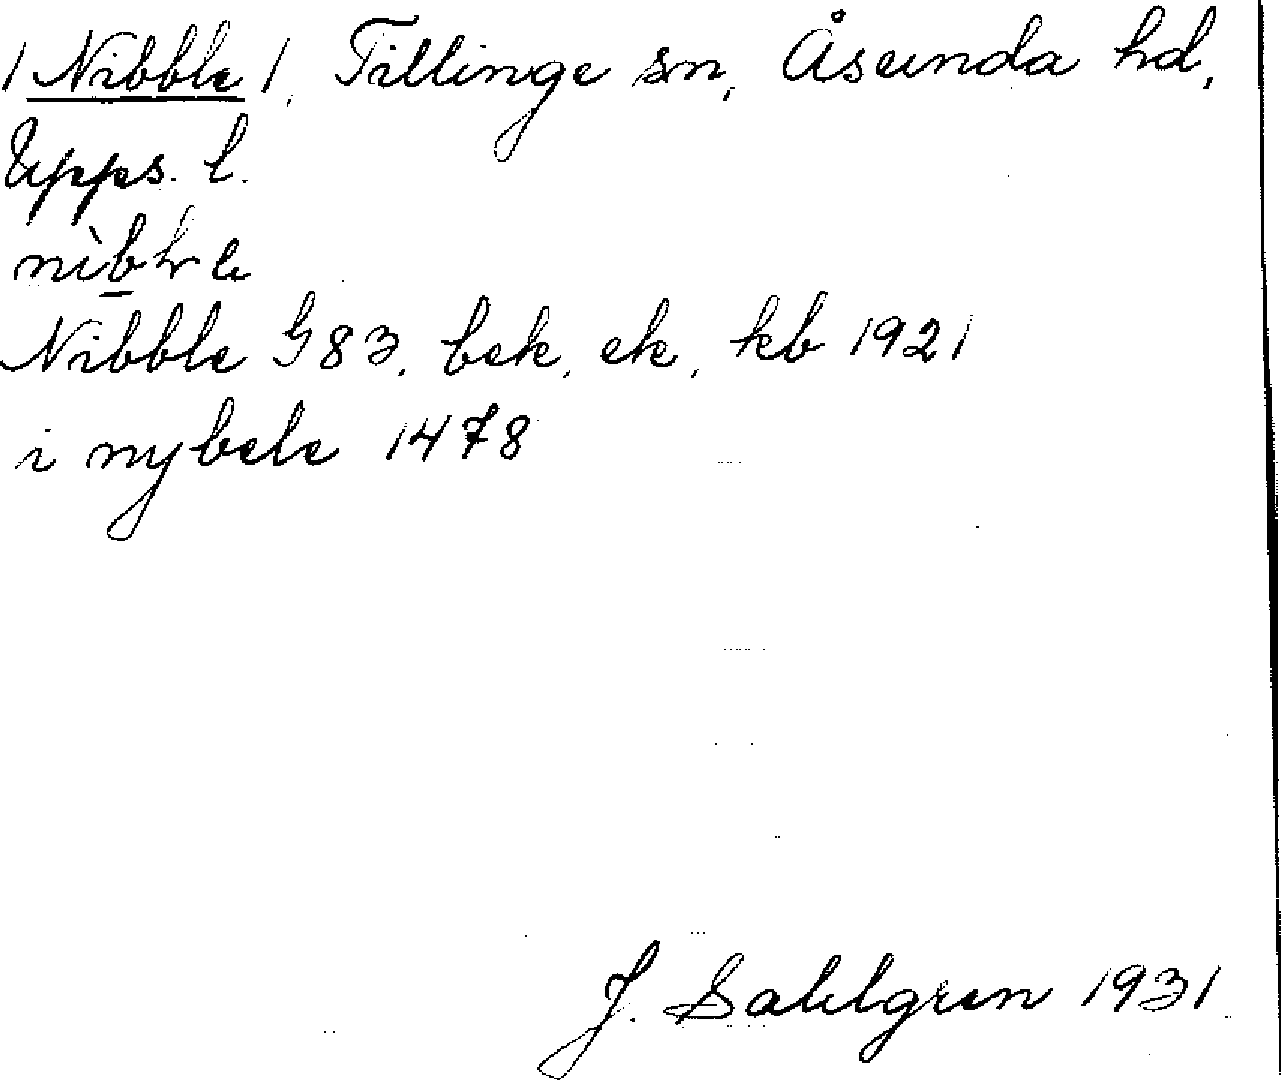 / Nibble /, Tillinge sn, Åsunda hd,
Upps. l.
Nibble G83, bek, ek, kb 1921
i nybele 1478
J. Sahlgren 1931